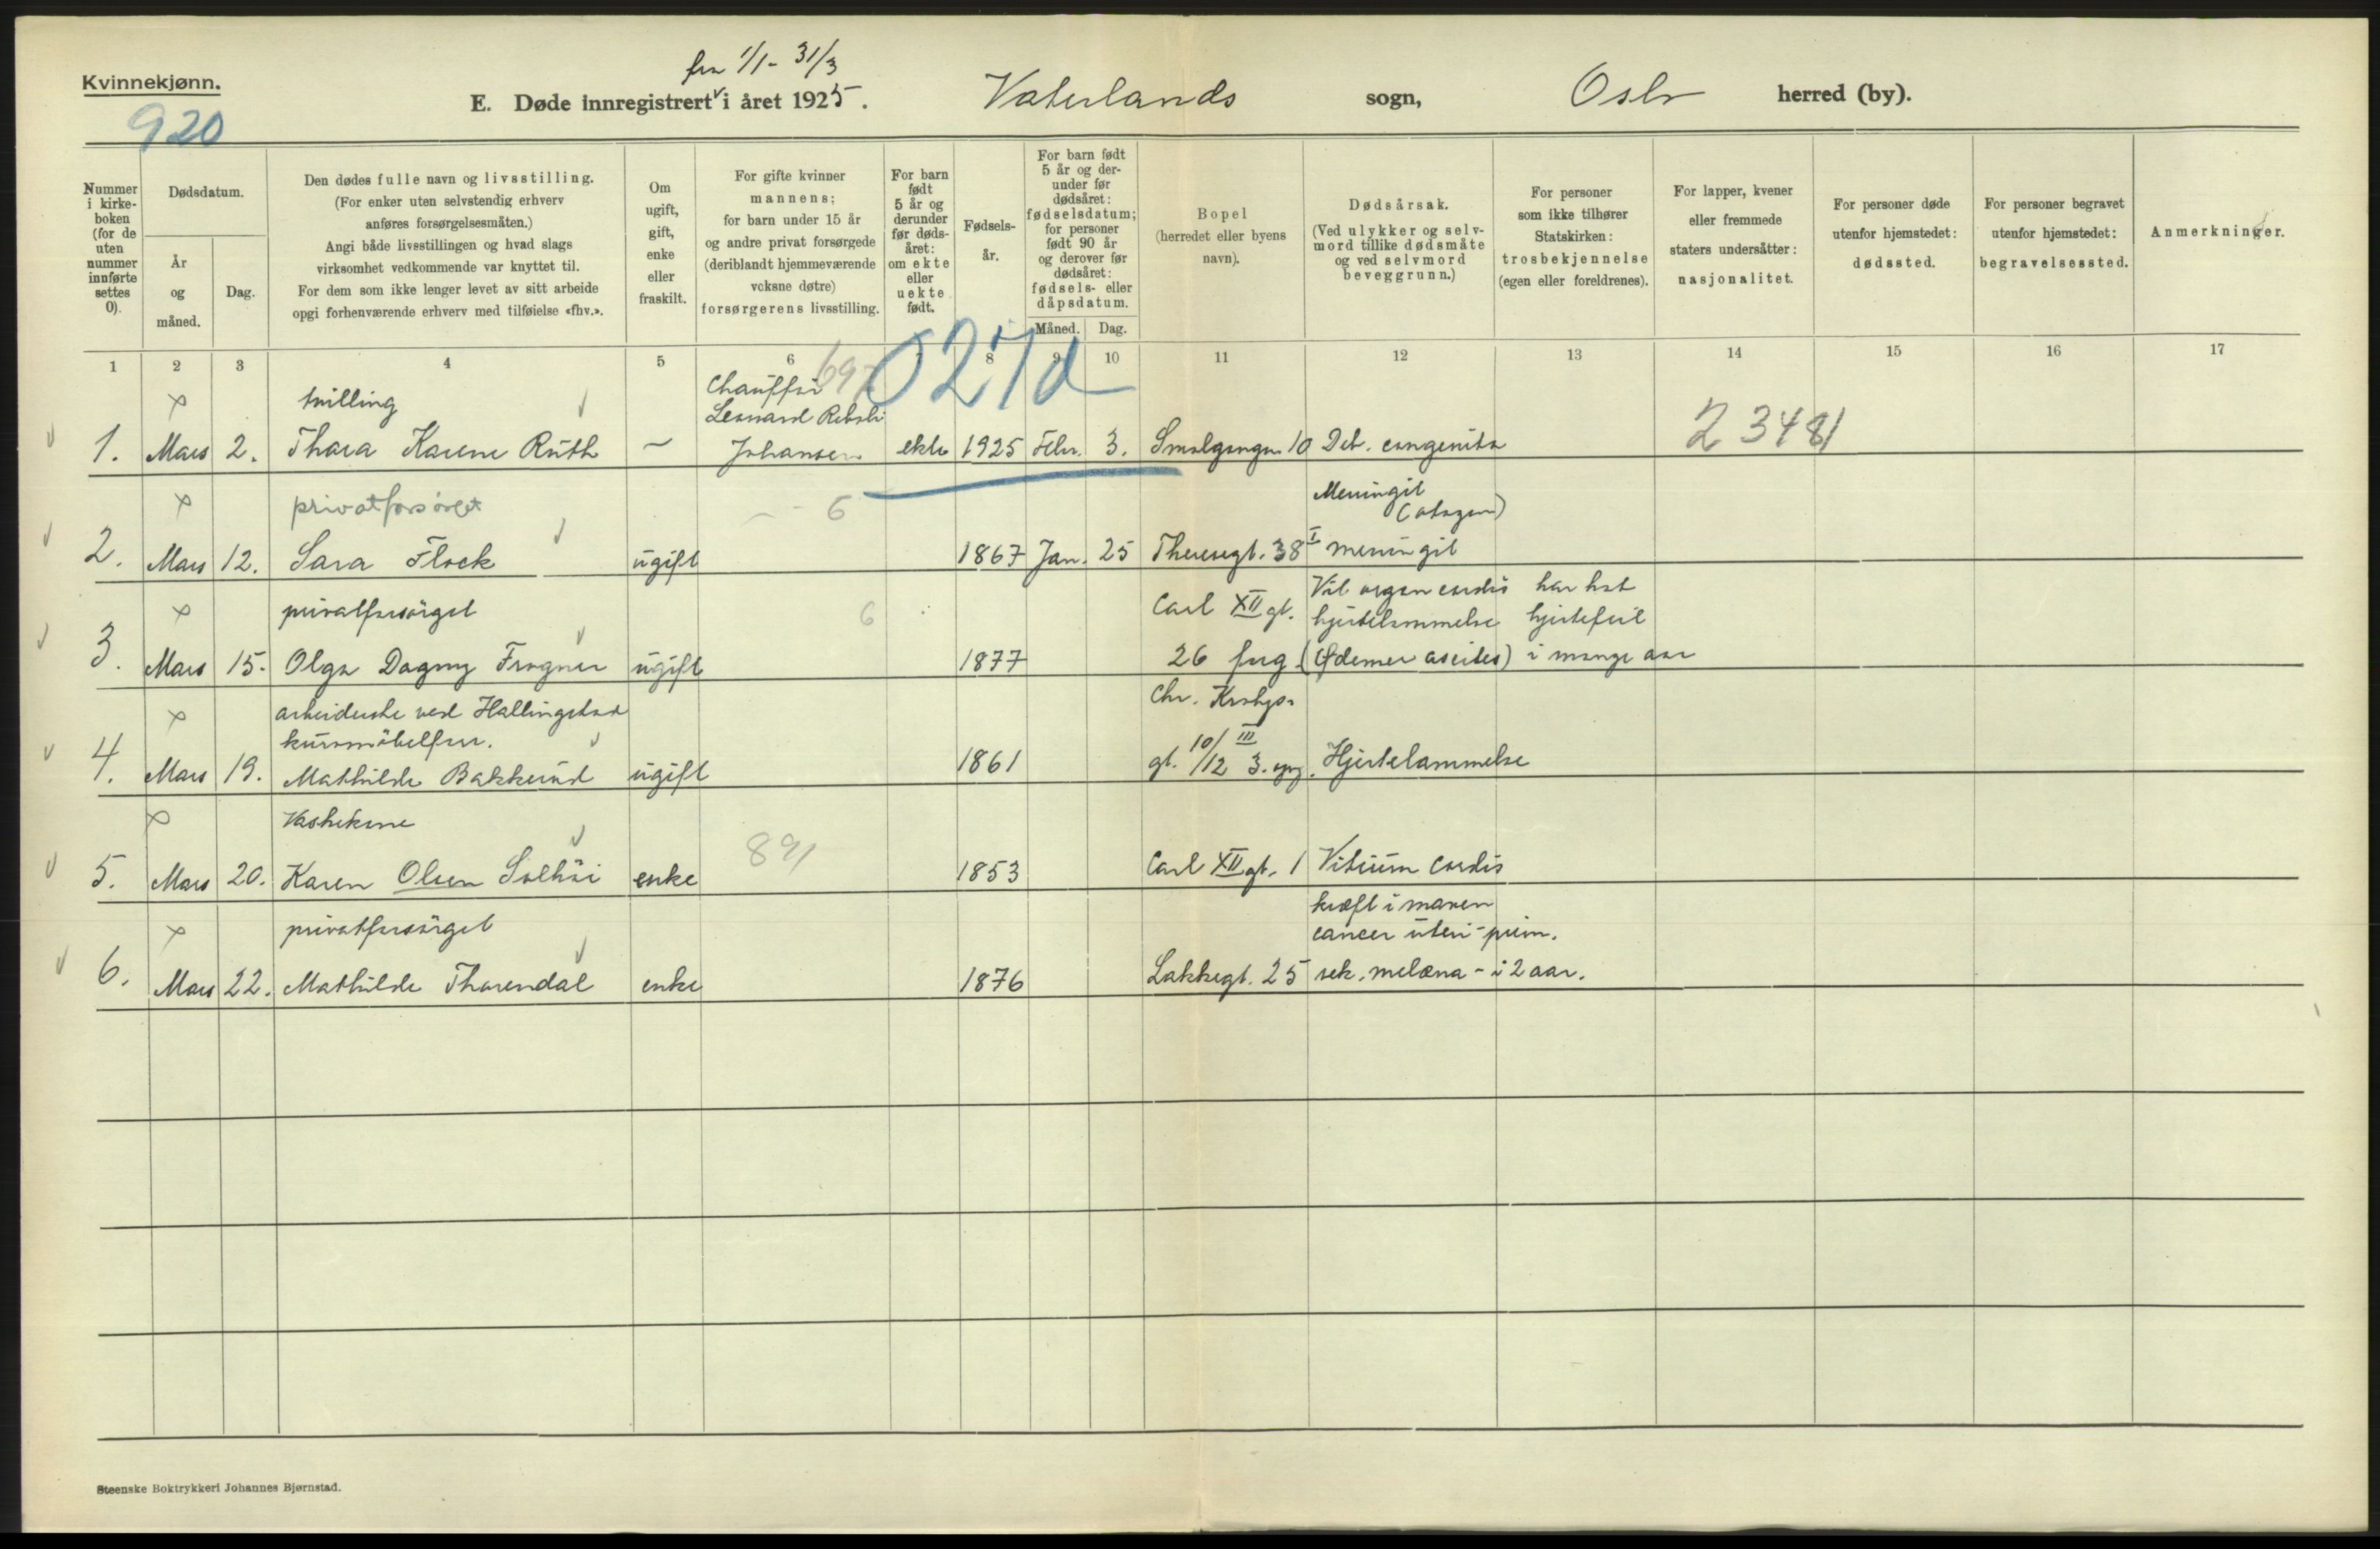 Kvinnekjønn.
920
fra 1/1 - 31/3
E. Døde innregistrert i året 1925.
Vaterlands sogn, Oslo herred (by).
Nummer i kirke-boken (for de uten nummer innførte settes 0).
Dødsdatum.
År og måned.
Dag.
Den dødes fulle navn og livsstilling.
(For enker uten selvstendig erhverv
anføres forsørgelsesmåten.)
Angi både livsstillingen og hvad slags
virksomhet vedkommende var knyttet til.
For dem som ikke lenger levet av sitt arbeide
opgi forhenværende erhverv med tilføielse «fhv.».
Om ugift, gift, enke eller fraskilt.
For gifte kvinner
mannens;
for barn under 15 år
og andre privat forsørgede
(deriblandt hjemmeværende
voksne døtre)
forsørgerens livsstilling.
For barn født 5 år og derunder før døds-året: om ekte eller uekte født.
Fødsels-år.
For barn født 5 år og der-under før dødsåret: fødselsdatum; for personer født 90 år og derover før dødsåret: fødsels- eller dåpsdatum.
Måned. Dag.
Bopel
(herredet eller byens
navn).
Dødsårsak.
(Ved ulykker og selv-
mord tillike dødsmåte
og ved selvmord
beveggrunn.)
For personer
som ikke tilhører
Statskirken:
trosbekjennelse
(egen eller foreldrenes).
For lapper, kvener
eller fremmede
staters undersåtter:
nasjonalitet.
For personer døde
utenfor hjemstedet:
dødssted.
For personer begravet
utenfor hjemstedet:
begravelsessted.
Anmerkninger.
1 2 3 4 5 6 8 9 10 11 12 13 14 15 16 17
027d
tvilling
Chauffør
Leonard
1. Mars 2. Thora Karene Ruth – Johansen ekte 1925 Febr. 3. Smalgangen 10 Deb. congenita
23481
privatforsörget
6
Meningit
(otogen)
2. Mars 12. Sara Flock ugift 1867 Jan. 25 Theresegt. 38 I meningit
privatforsörget
6
Carl XII gt.
Vit. organ cordis har hat
hjertelammelse hjertefeil
3. Mars 15. Olga Dagmy Frogner ugift 1877 26 (Ødemer ascites) i mange aar
arbeiderske ved Hallingstad
Chr. Krohgs-
kurvmöbelforr.
10/ III
4. Mars 19. Mathilde Bakkerud ugift 1861 gt. /12 3. Hjertelammelse
Vaskekone
891
5. Mars 20. Karen Olsen Solhöi enke 1853 Carl XII gt. 1 Vitium cordis
privatforsörget
kræft i maven
cancer uteri - prim.
6. Mars 22. Mathilde Thorendal enke 1876 Lakkegt. 25 sek. melæna - i 2 aar.
Steenske Boktrykkeri Johannes Bjørnstad.